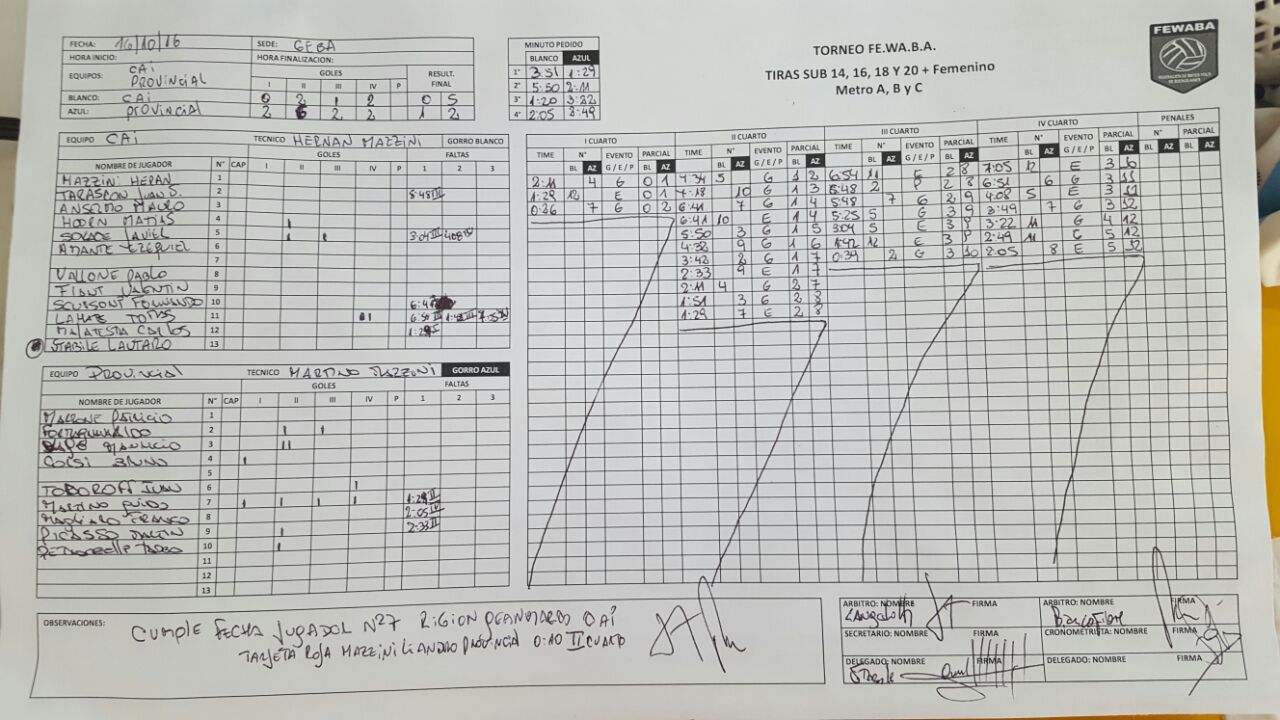 FEWABA
FEDERACION DE WATER POLO DE BUENOS AIRES
TORNEO FE.WA.B.A.
TIRAS SUB 14, 16, 18 Y 20 + Femenino
Metro A, B y C
FECHA: 16/10/16 SEDE: GEBA
HORA INICIO: HORA FINALIZACION:
EQUIPOS: CAI PROVINCIAL GOLES RESULT. FINAL
I II III IV P
BLANCO: CAI 0 2 1 2 0 5
AZUL: PROVINCIAL 2 6 2 2 1 2
MINUTO PEDIDO
BLANCO AZUL
1° 3:51 1:29
2° 5:50 2:11
3° 1:20 3:22
4° 2:05 3:49
EQUIPO CAI TECNICO HERNAN MAZZINI GORRO BLANCO
NOMBRE DE JUGADOR N° CAP GOLES FALTAS
I II III IV P 1 2 3
MAZZINI HERAN 1
TARASCON JUAN S. 2 5:48 III
ANSELMO MAURO 3
HOORN MATIAS 4 I
5 I I 3:04 III 4:08 IV
AMANTE EZEQUIEL 6
7
VALLONE PABLO 8
VALENTIN 9
FERNANDO 10 6:41
TOMAS 11 II
MALATESTA CARLOS 12 1:29 I
STABILE LAUTARO 13
EQUIPO PROVINCIAL TECNICO MARTINO GORRO AZUL
NOMBRE DE JUGADOR N° CAP GOLES FALTAS
I II III IV P 1 2 3
PATRICIO 1
2 I I
MAURICIO 3 II
CORSI BRUNO 4 I
5
TOBOROFF IVAN 6 I
MARTINO GUIDO 7 I I I I 1:29 II
FRANCO 8 2:05 IV
PICASSO MARTIN 9 I 2:33 II
10 I
11
12
13
I CUARTO
TIME N° EVENTO PARCIAL
BL AZ G / E / P BL AZ
2:11 4 G 0 1
1:29 12 E 0 1
0:36 7 G 0 2
II CUARTO
TIME N° EVENTO PARCIAL
BL AZ G / E / P BL AZ
7:34 5 G 1 2
7:18 10 G 1 3
6:41 7 G 1 4
6:41 10 E 1 4
5:50 3 G 1 5
4:32 9 G 1 6
3:42 2 G 1 7
2:33 9 E 1 7
2:11 4 G 2 7
1:51 3 G 2 8
1:29 7 E 2 8
III CUARTO
TIME N° EVENTO PARCIAL
BL AZ G / E / P BL AZ
6:54 11 E 2 8
5:48 2 P 2 8
5:48 7 G 2 9
5:25 5 G 3 9
3:04 5 E 3 9
1:42 12 E 3 9
0:39 2 G 3 10
IV CUARTO
TIME N° EVENTO PARCIAL
BL AZ G / E / P BL AZ
7:05 12 E 3
6:51 6 G 3 11
4:08 5 E 3 11
3:49 7 G 3 12
3:22 11 G 4 12
2:49 11 G 5 12
2:05 8 E 5 12
PENALES
N° PARCIAL
BL AZ BL AZ
OBSERVACIONES: CUMPLE FECHA JUGADOR N°7 CAI
TARJETA ROJA MAZZINI LEANDRO 0:40 II CUARTO
ARBITRO: NOMBRE FIRMA ARBITRO: NOMBRE FIRMA
SECRETARIO: NOMBRE FIRMA CRONOMETRISTA: NOMBRE FIRMA
DELEGADO: NOMBRE FIRMA DELEGADO: NOMBRE FIRMA